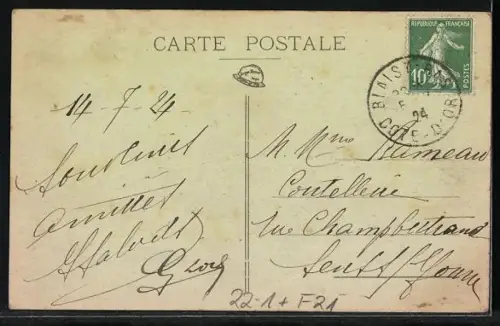 CARTE POSTALE
RÉPUBLIQUE FRANÇAISE
10c
POSTES
BLAISY-BAS
24
COTE-D'OR
14-7-24
Souvenirs
amitiés
Georg
M. Mme Rameau
Coutellerie
rue Champbertrand
Sens s/Yonne
22-1+ F21